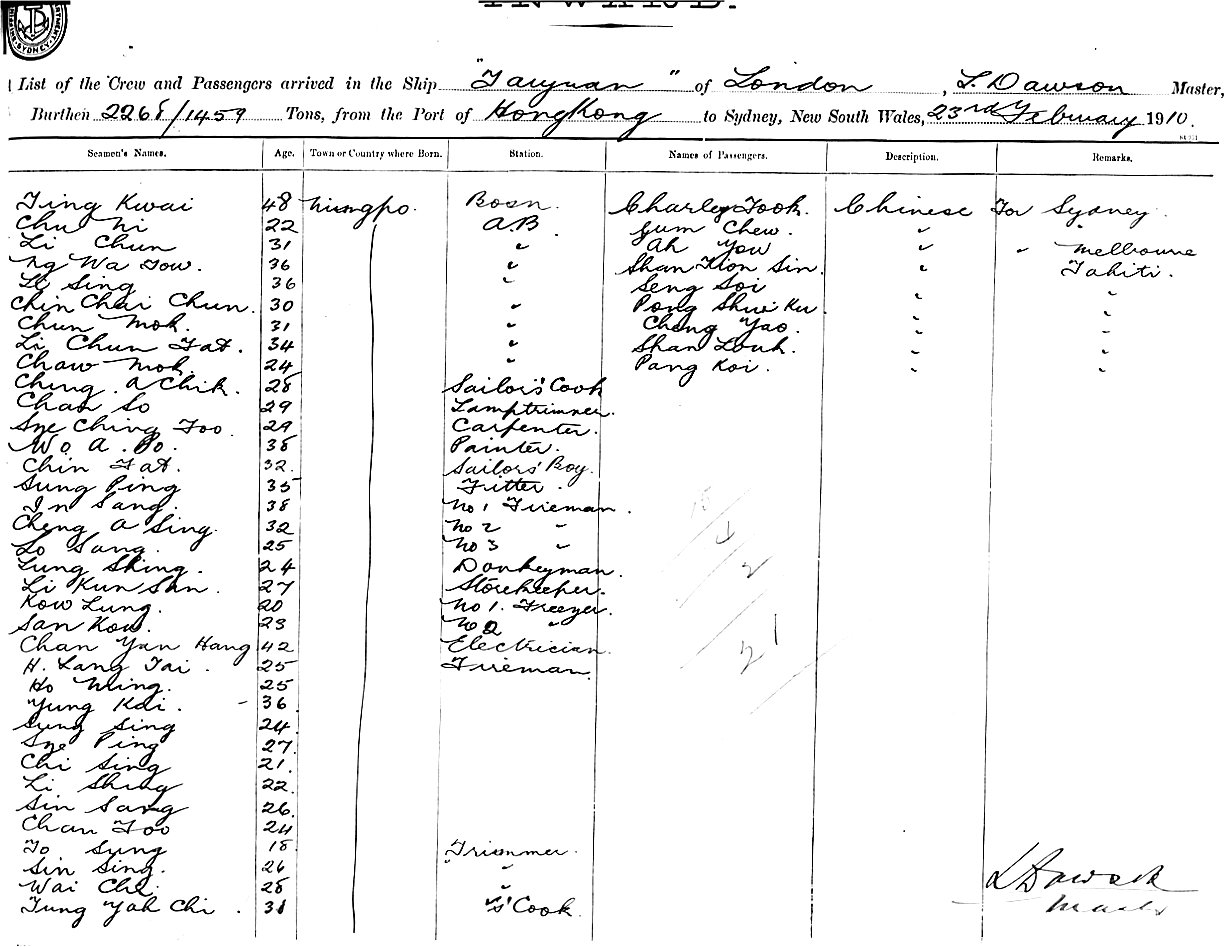 INWARD.
SYDNEY
List of the Crew and Passengers arrived in the Ship "Taiyuan" of London, L. Dawson Master,
Burthen 2268/1459 Tons, from the Port of HongKong to Sydney, New South Wales, 23rd February 1910.
Seamen's Names. Age. Town or Country where Born. Station. Names of Passengers. Description. Remarks.
Ting Kwai 48 Ningpo. Bosn. Charley Took. Chinese For Sydney.
Chu Ni 22 A.B Gum Chew. " "
Li Chun 31 " Ah You " " Melbourne
Ng Wa Tow. 36 " Shan Kion Sin. " Tahiti.
Li Sing 36 " Seng Soi " "
Chin Chai Chun. 30 " Pong Shui Ku " "
Chun Mok. 31 " Cheng Yao. " "
Li Chun Fat. 34 " Shan Louk. " "
Chaw Mok. 24 " Pang Koi. " "
Ching A Chik. 28 Sailors' Cook
Chan So 29 Lamptrimmer.
Sye Ching Foo. 29 Carpenter.
Wo. A. Po. 38 Painter.
Chin Fat. 32. Sailors' Boy.
Sung Ping 35 Fitter.
In Sang. 38 No 1 Fireman.
Cheng A Sing. 32 No 2 "
Lo Sang. 25 No 3 "
Lung Shing. 24 Donkeyman.
Li Kun San. 27 Storekeeper.
Kow Lung. 20 No 1. Freezer.
San Kow. 23 No 2 "
Chan Yan Hang 42 Electrician.
H. Lang Tai. 25 Fireman.
Ho Ming. 25
Yung Kai. 36
Sung Sing 24
Sye Ping 27
Chi Sing 21
Li Shing 22
Sin Sang 26
Chan Foo 24
To Sung 18 Trimmer.
Sin Sing. 26 "
Wai Chi. 28 "
Tung Yah Chi. 31 "s' Cook.
4
2
21
L Dawson
Master